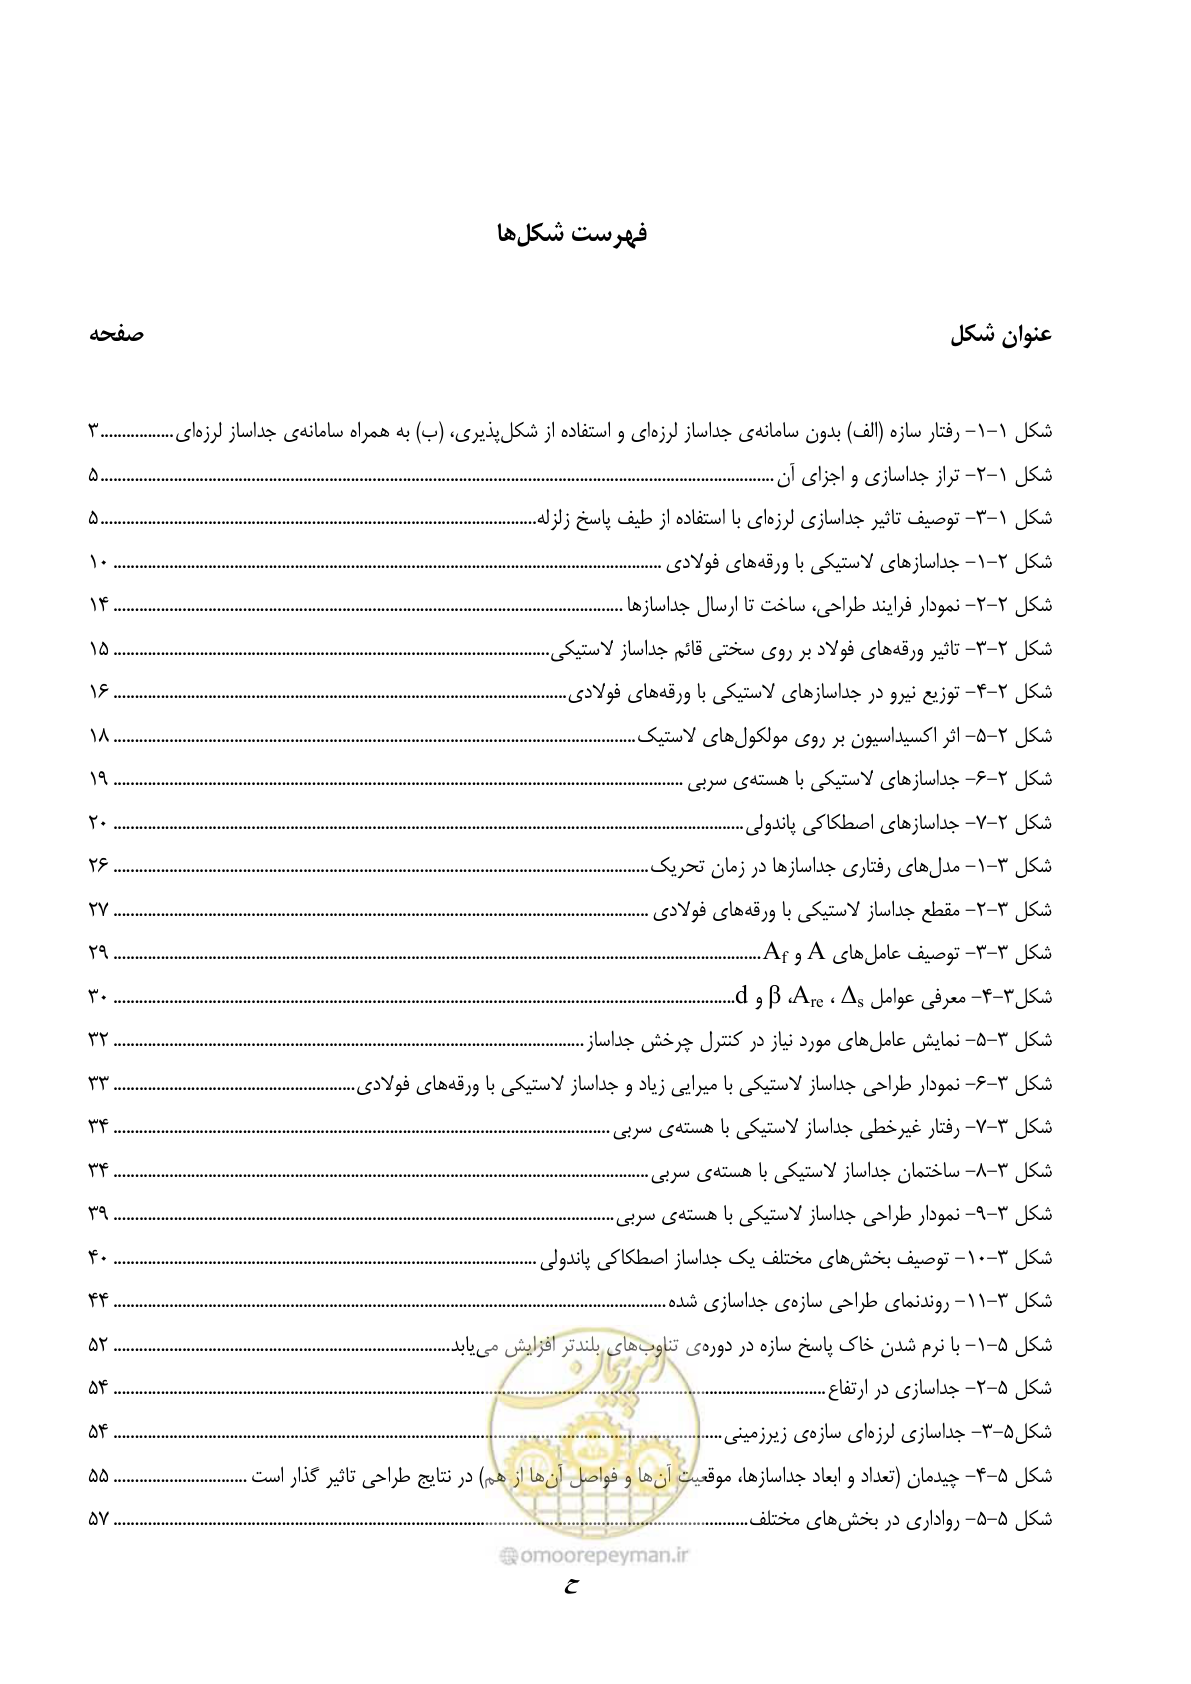 فهرست شکل‌ها
عنوان شکل صفحه
شکل ۱-۱- رفتار سازه (الف) بدون سامانه‌ی جداساز لرزه‌ای و استفاده از شکل‌پذیری، (ب) به همراه سامانه‌ی جداساز لرزه‌ای.................۳
شکل ۱-۲- تراز جداسازی و اجزای آن ........................................۵
شکل ۱-۳- توصیف تاثیر جداسازی لرزه‌ای با استفاده از طیف پاسخ زلزله........................................۵
شکل ۲-۱- جداسازهای لاستیکی با ورقه‌های فولادی ........................................ ۱۰
شکل ۲-۲- نمودار فرایند طراحی، ساخت تا ارسال جداسازها ........................................ ۱۴
شکل ۲-۳- تاثیر ورقه‌های فولاد بر روی سختی قائم جداساز لاستیکی........................................ ۱۵
شکل ۲-۴- توزیع نیرو در جداسازهای لاستیکی با ورقه‌های فولادی........................................ ۱۶
شکل ۲-۵- اثر اکسیداسیون بر روی مولکول‌های لاستیک........................................ ۱۸
شکل ۲-۶- جداسازهای لاستیکی با هسته‌ی سربی ........................................ ۱۹
شکل ۲-۷- جداسازهای اصطکاکی پاندولی........................................ ۲۰
شکل ۳-۱- مدل‌های رفتاری جداسازها در زمان تحریک........................................ ۲۶
شکل ۳-۲- مقطع جداساز لاستیکی با ورقه‌های فولادی ........................................ ۲۷
شکل ۳-۳- توصیف عامل‌های A و Af........................................ ۲۹
شکل۳-۴- معرفی عوامل Δs ، Are، β و d........................................ ۳۰
شکل ۳-۵- نمایش عامل‌های مورد نیاز در کنترل چرخش جداساز........................................ ۳۲
شکل ۳-۶- نمودار طراحی جداساز لاستیکی با میرایی زیاد و جداساز لاستیکی با ورقه‌های فولادی........................................ ۳۳
شکل ۳-۷- رفتار غیرخطی جداساز لاستیکی با هسته‌ی سربی ........................................ ۳۴
شکل ۳-۸- ساختمان جداساز لاستیکی با هسته‌ی سربی........................................ ۳۴
شکل ۳-۹- نمودار طراحی جداساز لاستیکی با هسته‌ی سربی........................................ ۳۹
شکل ۳-۱۰- توصیف بخش‌های مختلف یک جداساز اصطکاکی پاندولی ........................................ ۴۰
شکل ۳-۱۱- روندنمای طراحی سازه‌ی جداسازی شده........................................ ۴۴
شکل ۵-۱- با نرم شدن خاک پاسخ سازه در دوره‌ی تناوب‌های بلندتر افزایش می‌یابد........................................ ۵۲
شکل ۵-۲- جداسازی در ارتفاع........................................ ۵۴
شکل۵-۳- جداسازی لرزه‌ای سازه‌ی زیرزمینی........................................ ۵۴
شکل ۵-۴- چیدمان (تعداد و ابعاد جداسازها، موقعیت آن‌ها و فواصل آن‌ها از هم) در نتایج طراحی تاثیر گذار است ............................... ۵۵
شکل ۵-۵- رواداری در بخش‌های مختلف........................................ ۵۷
امور پیمان
@omoorepeyman.ir
ح